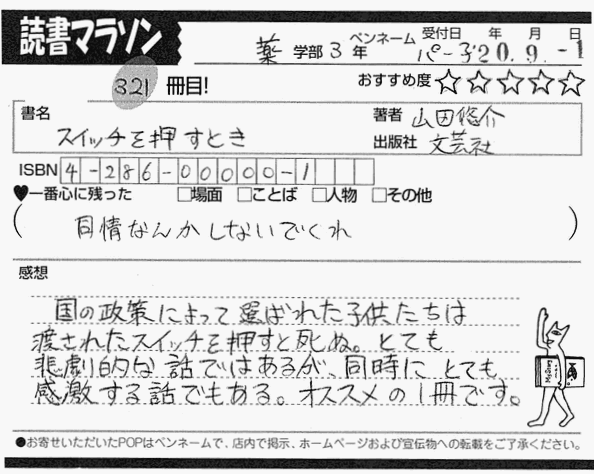 読書マラソン
受付日 年 月 日
薬 学部 3 年 ペンネーム パープ 20.9.-1
321 冊目!
おすすめ度 ☆☆☆☆☆
書名 スイッチを押すとき
著者 山田悠介
出版社 文芸社
ISBN 4-286-00000-1
♥一番心に残った □場面 □ことば □人物 □その他
(同情なんかしないでくれ)
感想
国の政策によって選ばれた子供たちは
渡されたスイッチを押すと死ぬ。とても
悲劇的な話ではあるが、同時にとても
感激する話でもある。オススメの1冊です。
●お寄せいただいたPOPはペンネームで、店内で掲示、ホームページおよび宣伝物への転載をご了承ください。